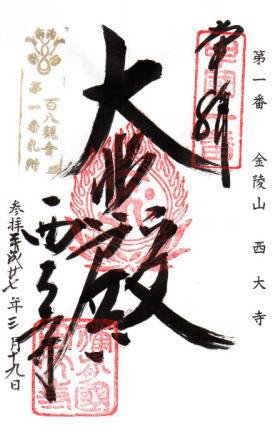 第一番 金陵山 西大寺
奉拝
大悲殿
西大寺
百八観音
第一番札所
参拝平成廿七年三月十九日